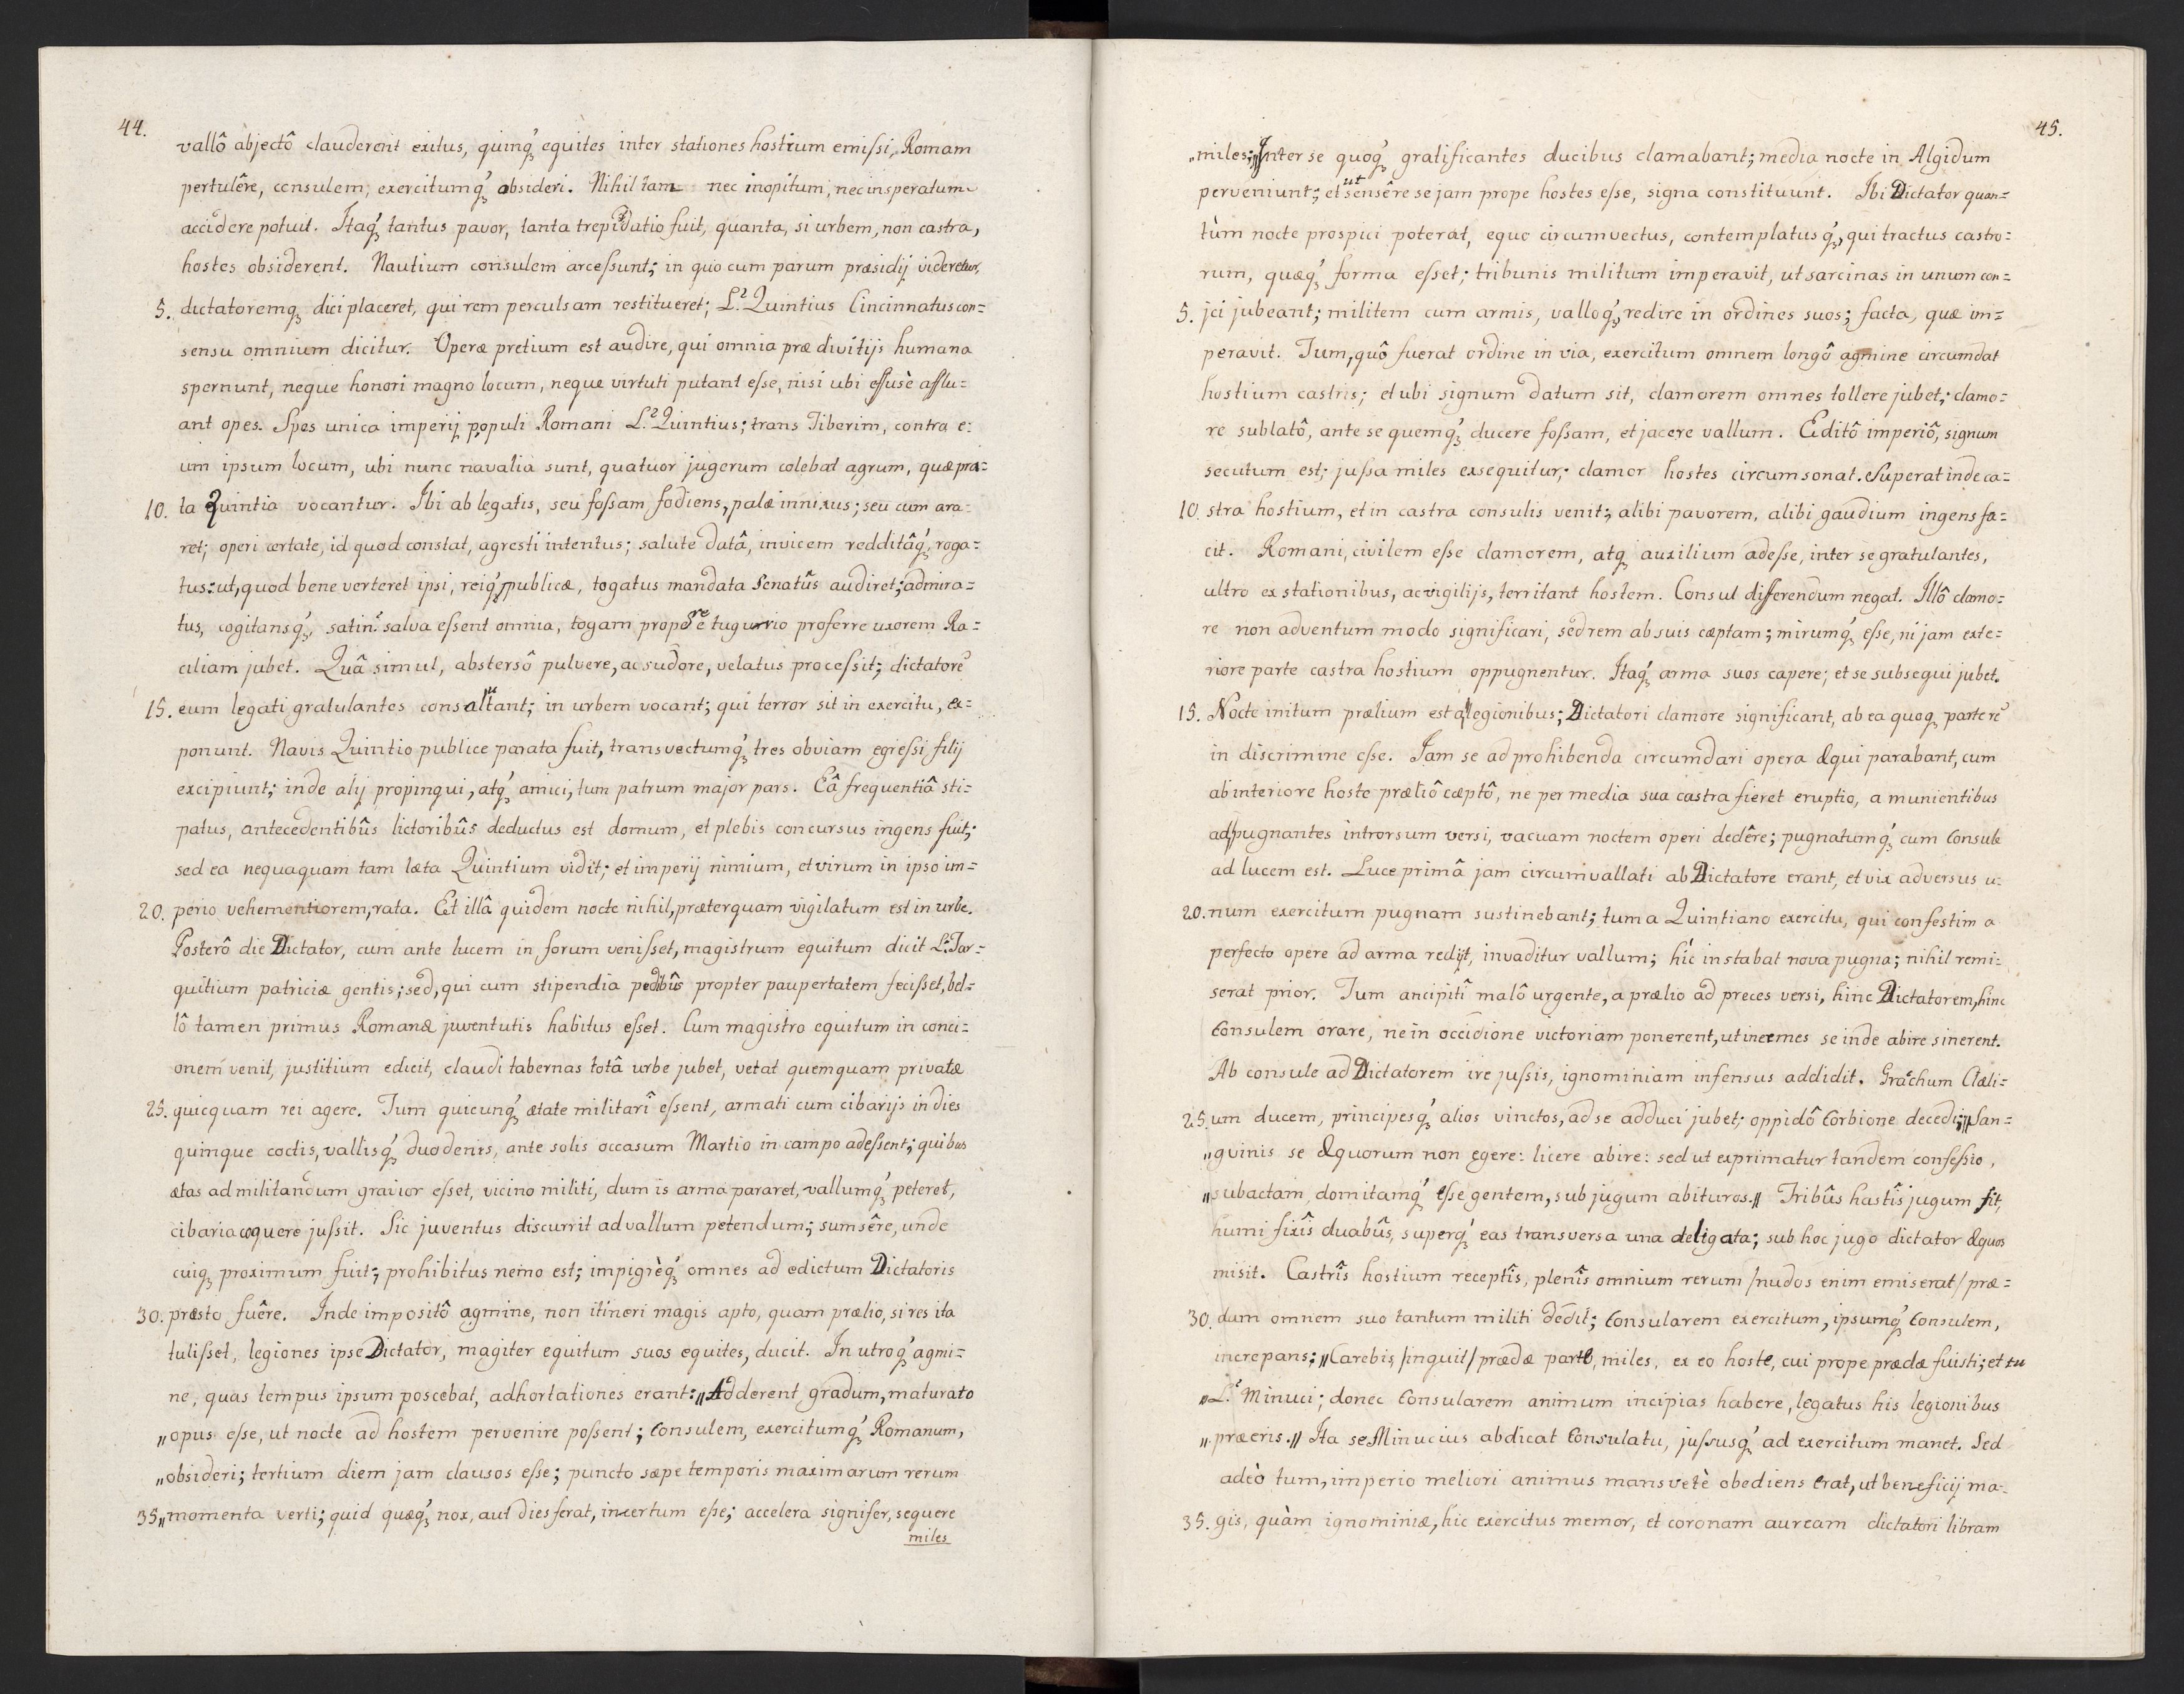 44.
vallô abjectô clauderent exitus, quinq́ꝫ equites inter stationes hostium emißi, Romam
pertulêre, consulem, exercitumq́ꝫ obsideri. Nihil tam nec inopitum, nec insperatum
accidere potuit. Itaq́ꝫ tantus pavor, tanta trepidatio fuit, quanta, si urbem, non castra,
hostes obsiderent. Nautium consulem arceßunt; in quo cum parum præsidij videretur,
5. dictatoremqꝫ dici placeret, qui rem perculsam restitueret; L. Quintius Cincinnatus con=
sensu omnium dicitur. Operæ pretium est audire, qui omnia præ divitijs humana
spernunt, neque honori magno locum, neque virtuti putant eße, nisi ubi effusè afflu=
ant opes. Spes unica imperij populi Romani L. Quintius; trans Tiberim, contra e=
um ipsum locum, ubi nunc navalia sunt, quatuor jugerum colebat agrum, quæ pra=
10. ta Quintia vocantur. Ibi ab legatis, seu foßam fodiens, palæ innixus; seu cum ara=
ret; operi certate, id quod constat, agresti intentus; salute datâ, invicem redditâq́ꝫ, roga=
tus: ut, quod bene verteret ipsi, reiq́ꝫ publicæ, togatus mandata Senatûs audiret; admira=
tus, cogitansq́ꝫ, satin' salva eßent omnia, togam propere tugurio proferre uxorem Ra=
ciliam jubet. Quâ simul, abstersô pulvere, ac sudore, velatus proceßit; dictatorē
15. eum legati gratulantes consalutant; in urbem vocant; qui terror sit in exercitu, ex=
ponunt. Navis Quintio publice parata fuit, transvectumq́ꝫ tres obviam egreßi filij
excipiunt; inde alij propinqui, atq́ꝫ amici, tum patrum major pars. Eâ frequentiâ sti=
patus, antecedentibûs lictoribûs deductus est domum, et plebis concursus ingens fuit;
sed ea nequaquam tam læta Quintium vidit; et imperij nimium, et virum in ipso im=
20. perio vehementiorem, rata. Et illâ quidem nocte nihil, præterquam vigilatum est in urbe.
Posterô die Dictator, cum ante lucem in forum venißet, magistrum equitum dicit L. Tar=
quitium patriciæ gentis; sed, qui cum stipendia pedibûs propter paupertatem fecißet, bel=
lô tamen primus Romanæ juventutis habitus eßet. Cum magistro equitum in conci=
onem venit, justitium edicit, claudi tabernas totâ urbe jubet, vetat quemquam privatæ
25. quicquam rei agere. Tum quicunq́ꝫ ætate militarî eßent, armati cum cibarijs in dies
quinque coctis, vallisq́ꝫ duodenis, ante solis occasum Martio in campo adeßent; quibus
ætas ad militandum gravior eßet, vicino militi, dum is arma pararet, vallumq́ꝫ peteret,
cibaria coquere jußit. Sic juventus discurrit ad vallum petendum; sumsêre, unde
cuiqꝫ proximum fuit; prohibitus nemo est; impigrèq́ꝫ omnes ad edictum Dictatoris
30. præsto fuêre. Inde impositô agmine, non itineri magis apto, quam prælio, si res ita
tulißet, legiones ipse Dictator, magiter equitum suos equites, ducit. In utroq́ꝫ agmi=
ne, quas tempus ipsum poscebat, adhortationes erant: „Adderent gradum, maturato
„opus eße, ut nocte ad hostem pervenire poßent; Consulem, exercitumq́ꝫ Romanum,
„obsideri; tertium diem jam clausos eße; puncto sæpe temporis maximarum rerum
35. „momenta verti; quid quæq́ꝫ nox, aut dies ferat, incertum eße; accelera signifer, sequere
miles
45.
„miles;„ Inter se quoq́ꝫ gratificantes ducibus clamabant; media nocte in Algidum
perveniunt; et ut sensêre se jam prope hostes eße, signa constituunt. Ibi Dictator quan=
tùm nocte prospici poterat, equo circumvectus, contemplatusq́ꝫ, qui tractus castro=
rum, quæq́ꝫ forma eßet; tribunis militum imperavit, ut sarcinas in unum con=
5. jci jubeant; militem cum armis, valloq́ꝫ, redire in ordines suos; facta, quæ im=
peravit. Tum, quô fuerat ordine in via, exercitum omnem longô agmine circumdat
hostium castris; et ubi signum datum sit, clamorem omnes tollere jubet; clamo=
re sublatô, ante se quemq́ꝫ ducere foßam, et jacere vallum. Editô imperiô, signum
secutum est; jußa miles exsequitur; clamor hostes circumsonat. Superat inde ca=
10. stra hostium, et in castra consulis venit; alibi pavorem, alibi gaudium ingens fa=
cit. Romani, civilem eße clamorem, atqꝫ auxilium adeße, inter se gratulantes,
ultro ex stationibus, ac vigilijs, territant hostem. Consul differendum negat. Illô clamo=
re non adventum modo significari, sed rem ab suis cæptam; mirumq́ꝫ eße, ni jam exte=
riore parte castra hostium oppugnentur. Itaq́ꝫ arma suos capere; et se subsequi jubet.
15. Nocte initum prælium est a legionibus; Dictatori clamore significant, ab ea quoqꝫ parte rē
in discrimine eße. Jam se ad prohibenda circumdari opera Æqui parabant, cum
ab interiore hoste præliô cæptô, ne per media sua castra fieret eruptio, a munientibus
ad pugnantes introrsum versi, vacuam noctem operi dedêre; pugnatumq́ꝫ cum Consule
ad lucem est. Luce primâ jam circumvallati ab Dictatore erant, et vix adversus u=
20. num exercitum pugnam sustinebant; tum a Quintiano exercitu, qui confestim a
perfecto opere ad arma redijt, invaditur vallum; hîc instabat nova pugna; nihil remi=
serat prior. Tum ancipitî malô urgente, a prælio ad preces versi, hinc Dictatorem, hinc
Consulem orare, ne in occidione victoriam ponerent, ut inermes se inde abire sinerent.
Ab consule ad Dictatorem ire jußis, ignominiam infensus addidit. Gracchum Clæli=
25. um ducem, principesq́ꝫ alios vinctos, ad se adduci jubet; oppidô Corbione decedi; „San=
„guinis se Æquorum non egere: licere abire: sed ut exprimatur tandem confeßio,
„subactam, domitamq́ꝫ eße gentem, sub jugum abituros.„ Tribûs hastîs jugum fit,
humi fixîs duabûs, superq́ꝫ eas transversa una deligata; sub hoc jugo dictator Æquos
misit. Castrîs hostium receptîs, plenîs omnium rerum /nudos enim emiserat/ præ=
30. dam omnem suo tantum militi dedit; Consularem exercitum, ipsumq́ꝫ Consulem,
increpans; „Carebis /inquit/ prædæ parte, miles, ex eo hoste, cui prope prædæ fuisti; et tu
„L. Minuci; donec Consularem animum incipias habere, legatus his legionibus
„præeris.„ Ita se Minucius abdicat Consulatu, jußusq́ꝫ ad exercitum manet. Sed
adeò tum, imperio meliori animus mansvetè obediens erat, ut beneficij ma=
35. gis, quàm ignominiæ, hic exercitus memor, et coronam auream dictatori libram